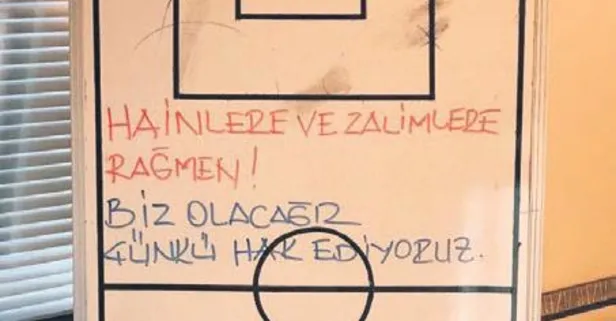 HAİNLERE VE ZALİMLERE
RAĞMEN!
BİZ OLACAĞIZ
ÇÜNKÜ HAK EDİYORUZ.